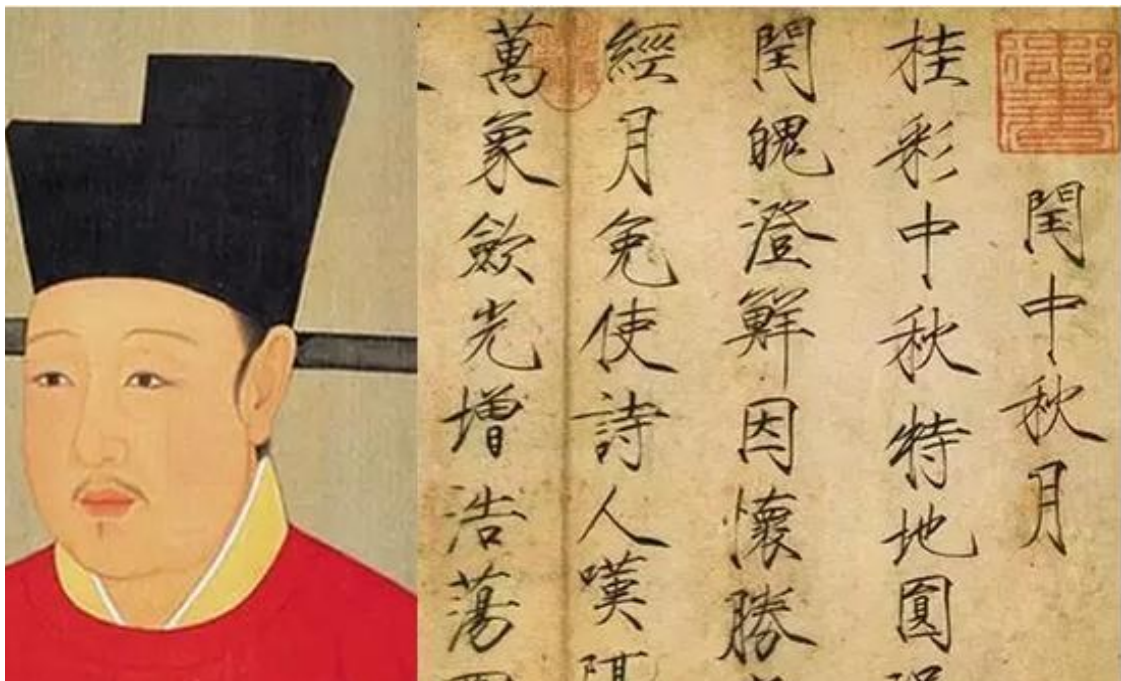 閏中秋月
桂彩中秋特地圓
閏魄澄鮮因懷勝
經月免使詩人嘆
萬象歛光增浩蕩